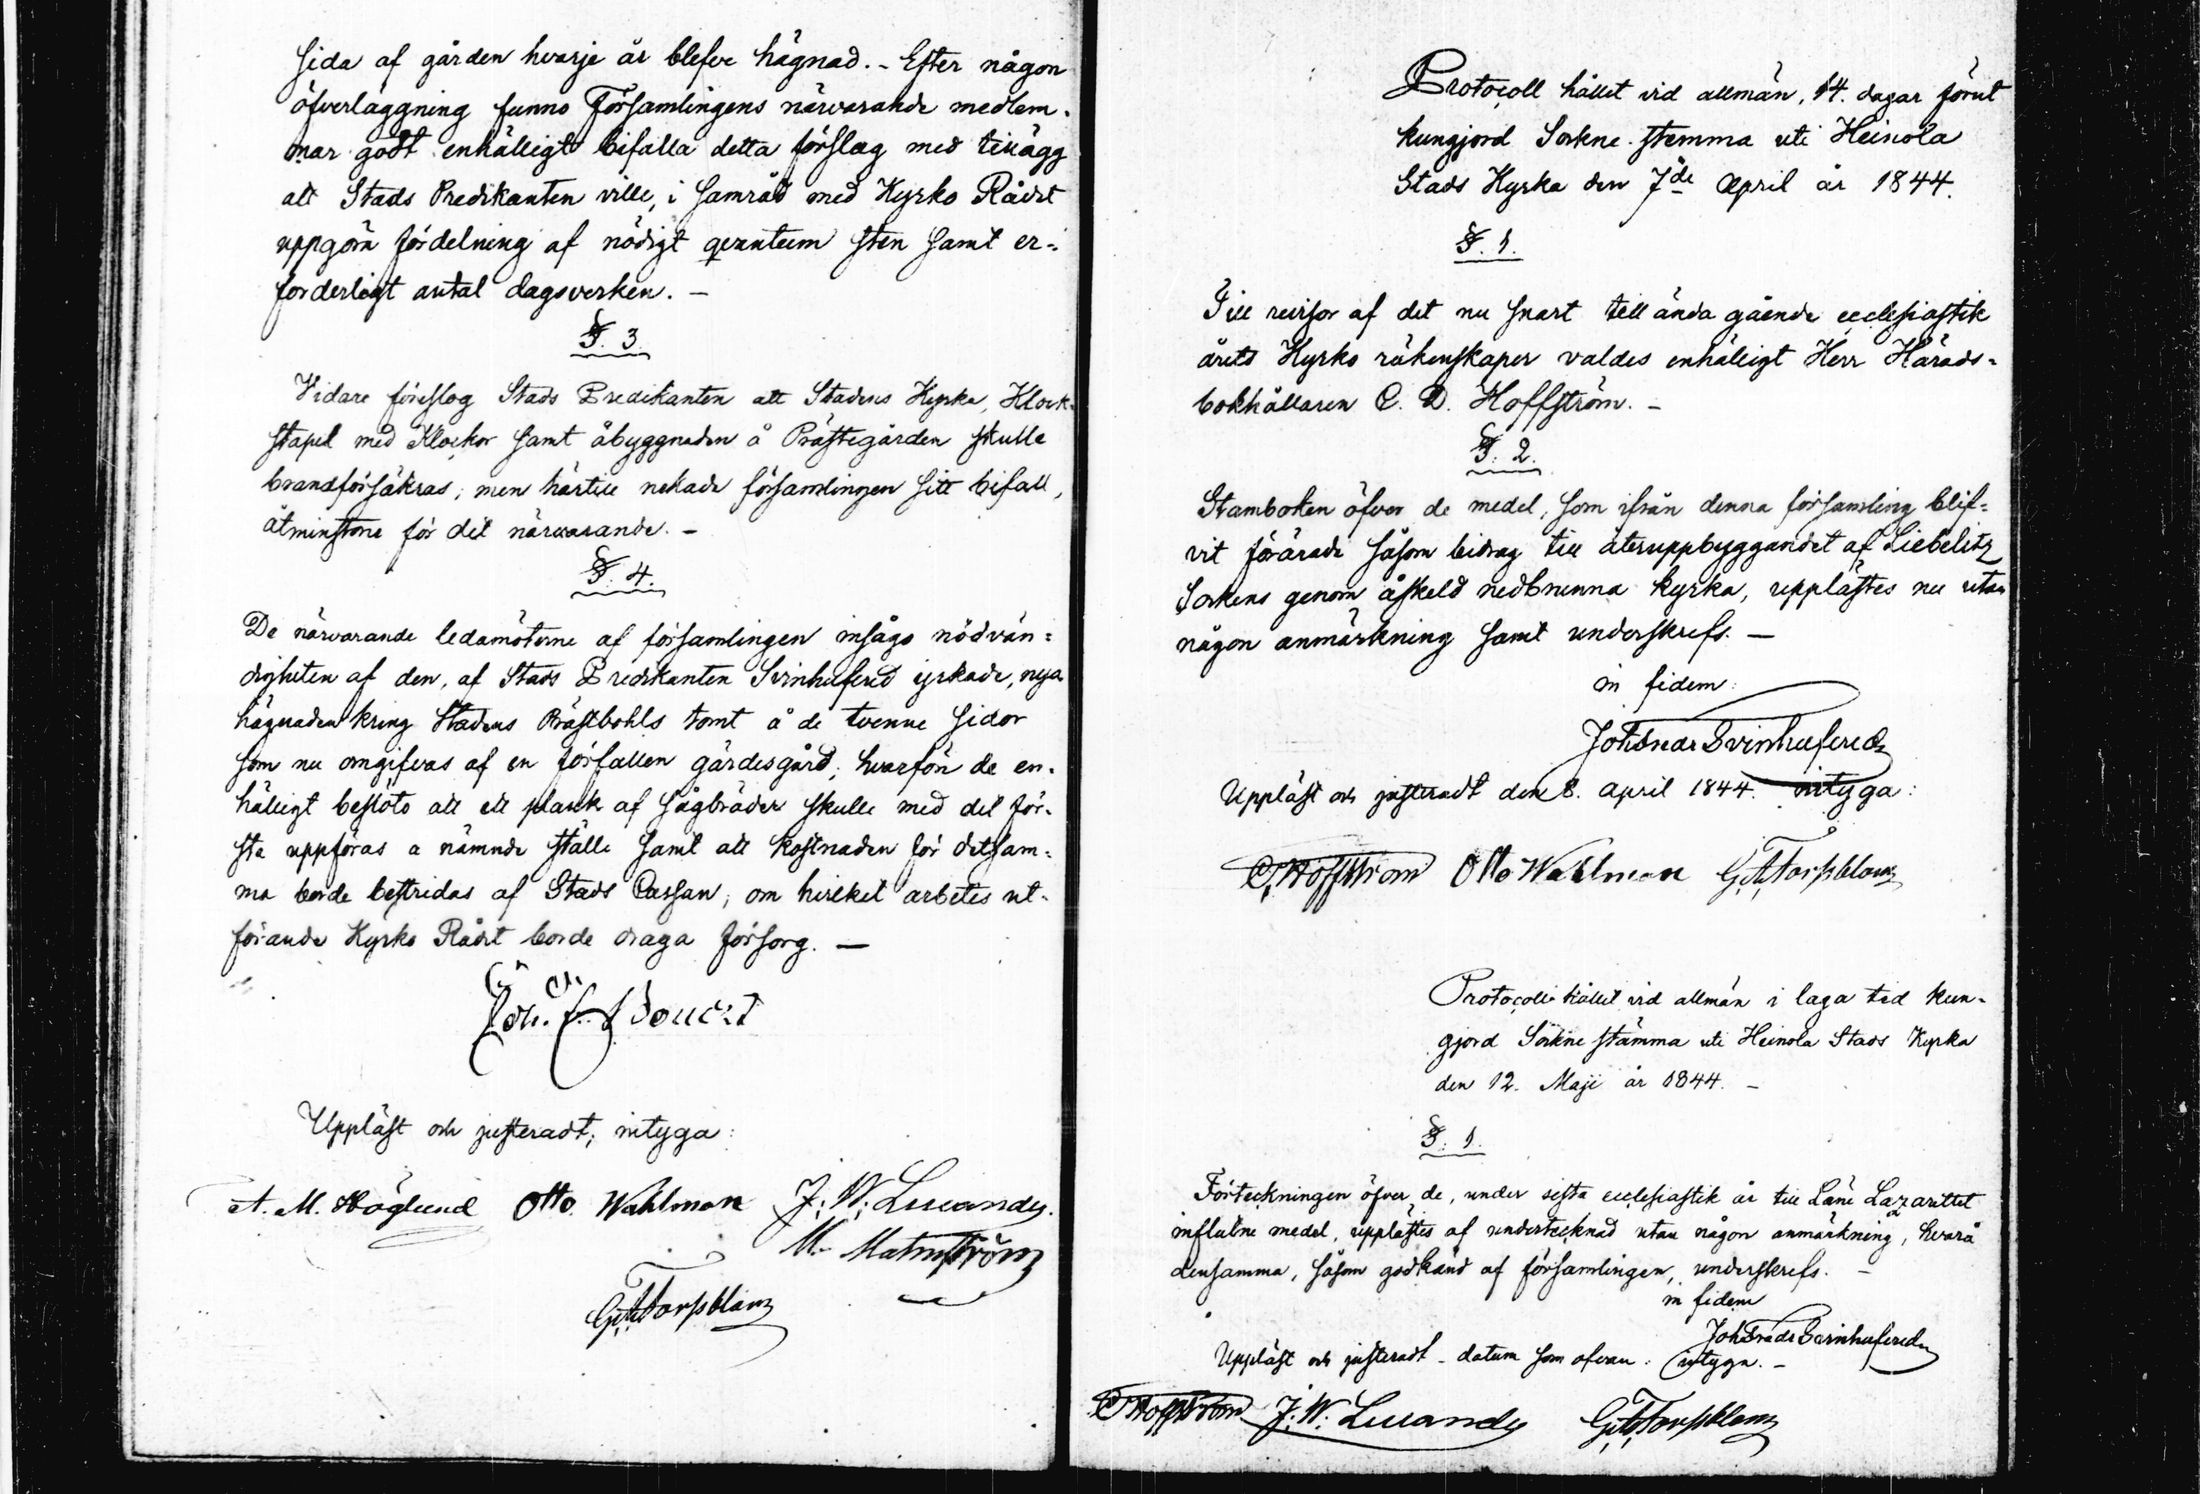 sida af gården hvarje år blefve hägnad. - Efter någon
öfverläggning funno Församlingens närvarande medlem-
mar godt enhälligt bifalla detta förslag med tillägg
att Stads Predikanten ville, i samråd med Kyrko Rådet
uppgöra fördelning af nödigt quantum sten samt er-
forderligt antal dagsverken. -
§. 3.
Vidare föreslog Stads Predikanten att Stadens Kyrka, Klock-
stapel med Klockor samt åbyggnaden å Prästegården skulle
brandförsäkras; men härtill nekade församlingen sitt bifall,
åtminstone för det närvarande. -
§. 4.
De närvarande ledamöterne af församlingen insågo nödvän-
digheten af den, af Stads Predikanten Svinhufvud yrkade, nya
hägnaden kring Stadens Prästbohls tomt å de tvenne sidor
som nu omgifvas af en förfallen gärdesgård; hvarför de en-
hälligt beslöto att ett plank af sågbräder skulle med det för-
sta uppföras å nämnde ställe samt att kostnaden för detsam-
ma borde bestridas af Stads Cassan; om hvilket arbetes ut-
förande Kyrko Rådet borde draga försorg. -
Joh.
Uppläst och justeradt; intyga:
A. M. Höglund Otto Wahlman J: W: Lucander.
M. Malmström
G: A: Forssblom
Protocoll hållit vid allmän, 14. dagar förut
kungjord Sockne-stemma uti Heinola
Stads Kyrka den 7de April år 1844.
§. 1.
Till revisor af det nu snart till ända gående ecclesiastik
årets Kyrko räkenskaper valdes enhälligt Herr Härads-
bokhållaren C. D. Hoffström. -
§. 2.
Stamboken öfver de medel, som ifrån denna församling blif-
vit förärade såsom bidrag till återuppbyggandet af Liebelitz
Sockens genom åskeld nedbrunna kyrka, upplästes nu utan
någon anmärkning samt underskrefs. -
in fidem:
Joh Svinhufvud
Uppläst och justeradt den 8. April 1844. intyga:
C. Hoffström Otto Wahlman G: A: Forssblom
Protocoll hållit vid allmän i laga tid kun-
gjord Sockne stämma uti Heinola Stads Kyrka
den 12. Maji år 1844. -
§. 1.
Förteckningen öfver de, under sista ecclesiastik år till Läne Lazarettet
influtne medel, upplästes af undertecknad utan någon anmärkning, hvarå
densamma, såsom godkänd af församlingen, underskrefs. -
in fidem
Joh Svinhufvud
Uppläst och justeradt - datum som ofvan: intyga. -
C Hoffström J: W: Lucander G: A: Forssblom